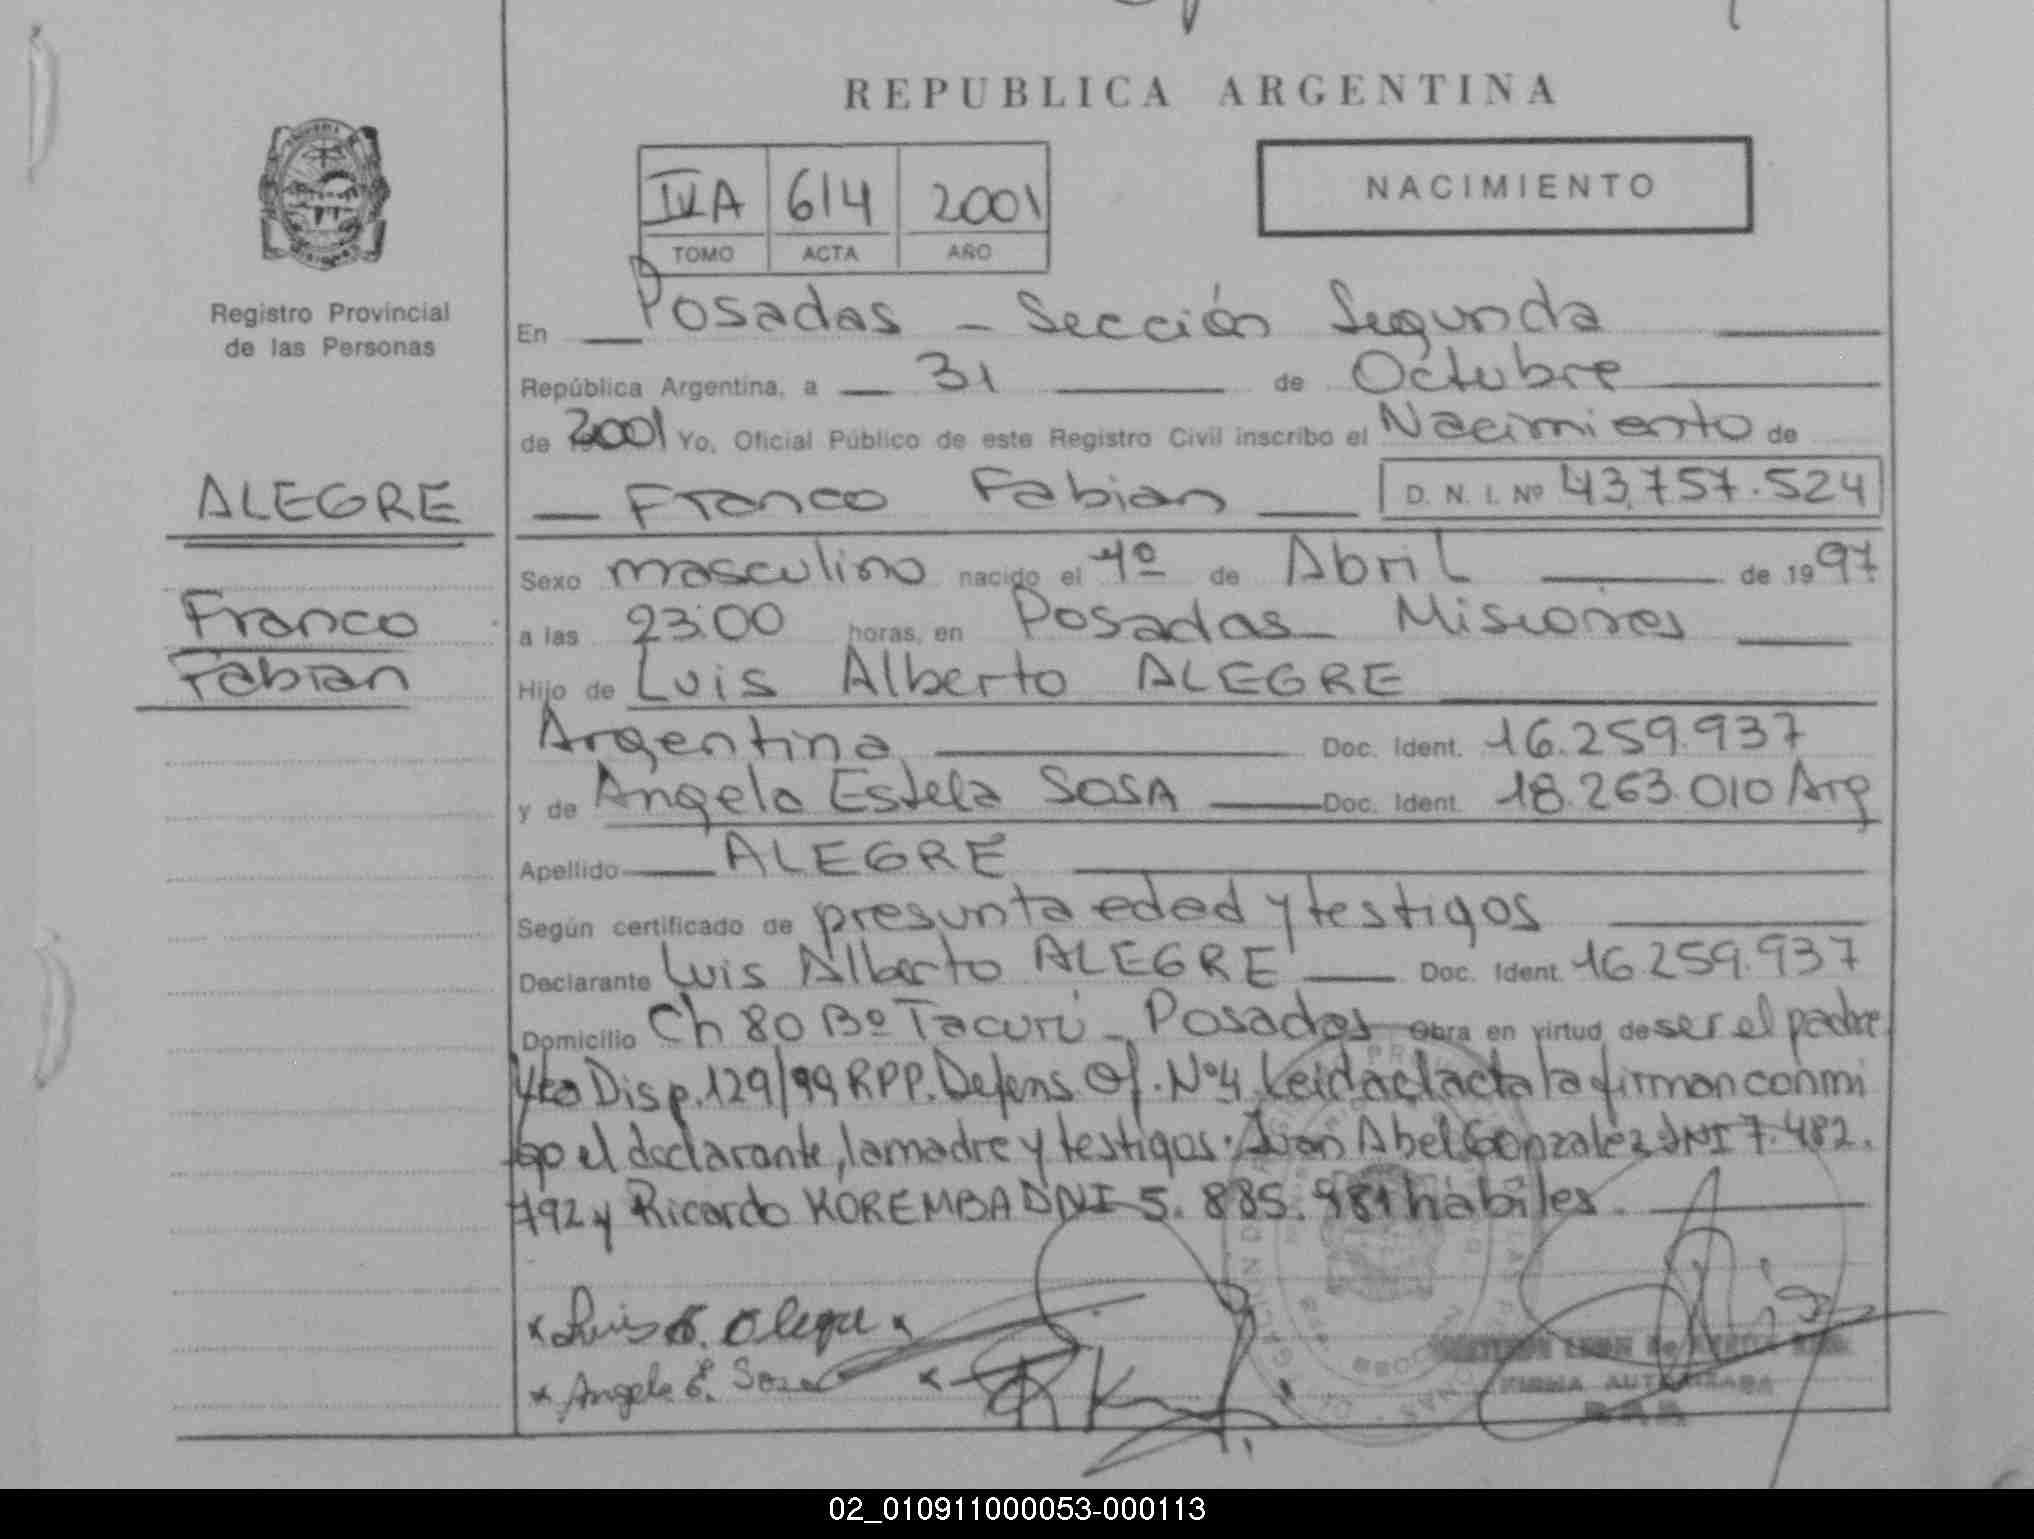 REPUBLICA ARGENTINA
IVA 614 2001
TOMO ACTA AÑO
NACIMIENTO
Registro Provincial
de las Personas
ALEGRE
Franco
Fabian
En Posadas - Sección Segunda
República Argentina, a 31 de Octubre
de 2001 Yo, Oficial Público de este Registro Civil inscribo el Nacimiento de
Franco Fabian D. N. I. Nº 43.757.524
Sexo masculino nacido el 1º de Abril de 1997
a las 23:00 horas, en Posadas - Misiones
Hijo de Luis Alberto ALEGRE
Argentina Doc. Ident. 16.259.937
y de Angela Estela SOSA Doc. Ident. 18.263.010 Arg
Apellido ALEGRE
Según certificado de presunta edad y testigos
Declarante Luis Alberto ALEGRE Doc. Ident. 16.259.937
Domicilio Ch 80 Bº Tacurú - Posadas Obra en virtud de ser el padre
Disp. 129/99 RPP. Defens. Of. Nº4. Leida el acta la firman conmi
go el declarante, la madre y testigos: Juan Abel Gonzalez DNI 7.482.
792 y Ricardo KOREMBA DNI 5.885.981 habiles.
x Luis A. Alegre x
x Angela E. Sosa x
FIRMA AUTORIZADA
02_010911000053-000113